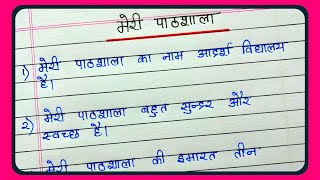 मेरी पाठशाला
1) मेरी पाठशाला का नाम आदर्श विद्यालय
है।
2) मेरी पाठशाला बहुत सुन्दर और
स्वच्छ है।
मेरी पाठशाला की इमारत तीन